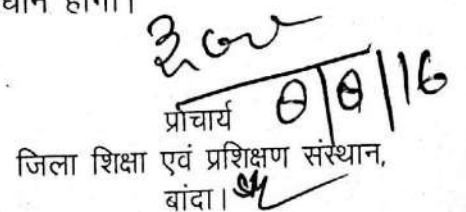 होगा।
8/8/16
प्राचार्य
जिला शिक्षा एवं प्रशिक्षण संस्थान,
बांदा।